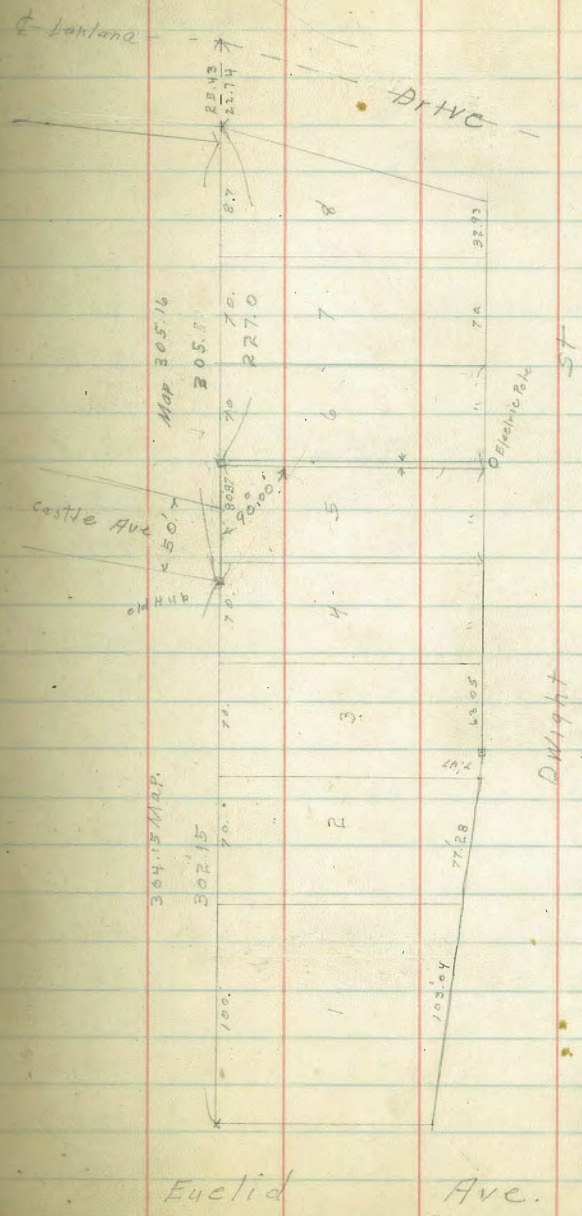 ℄ Lantana
Drive
23.43
22.74
8.7
8
32.93
Map 305.16
305.
70.
227.0
7
70
70
6
"
St
O Electric Pole
Castle Ave
50'
80.87
90°00'
5
"
70.
4
"
70.
3
62.05
Dwight
304.15 Map.
302.15
70.
2
77.28
100.
1
103.04
Euclid Ave.